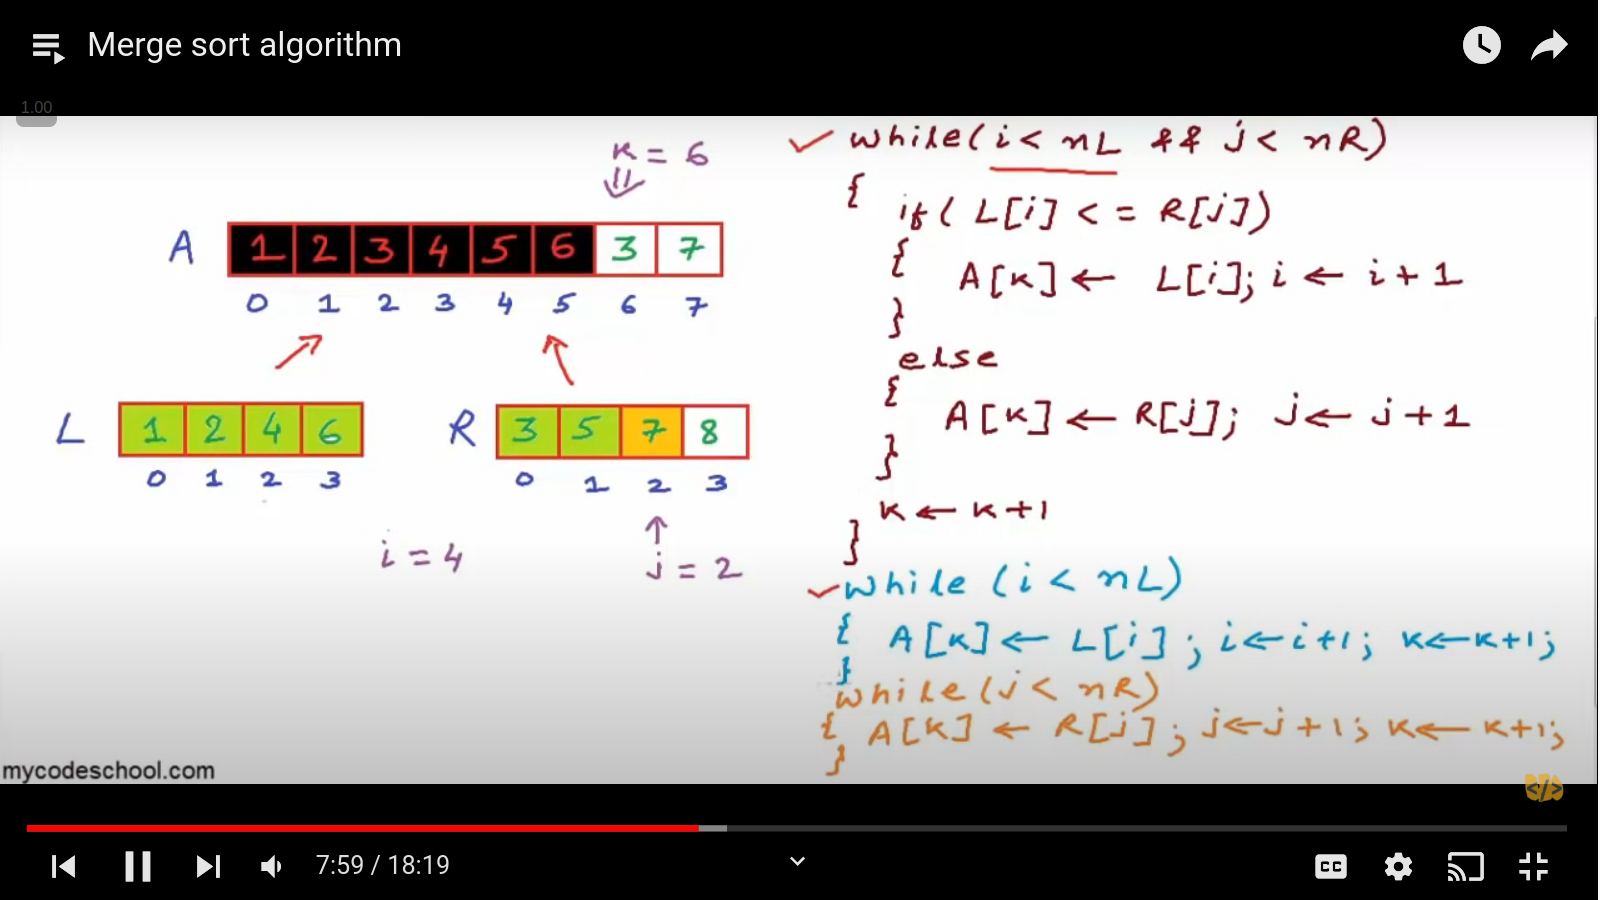 Merge sort algorithm
1.00
k = 6
A 1 2 3 4 5 6 3 7
0 1 2 3 4 5 6 7
L 1 2 4 6
0 1 2 3
R 3 5 7 8
0 1 2 3
i = 4
j = 2
while(i < nL && j < nR)
{
if( L[i] <= R[j])
{
A[k] ← L[i]; i ← i+1
}
else
{
A[k] ← R[j]; j ← j+1
}
k ← k+1
}
while (i < nL)
{ A[k] ← L[i]; i←i+1; k←k+1;
}
while(j < nR)
{ A[k] ← R[j]; j←j+1; k← k+1;
}
mycodeschool.com
</>
7:59 / 18:19
CC